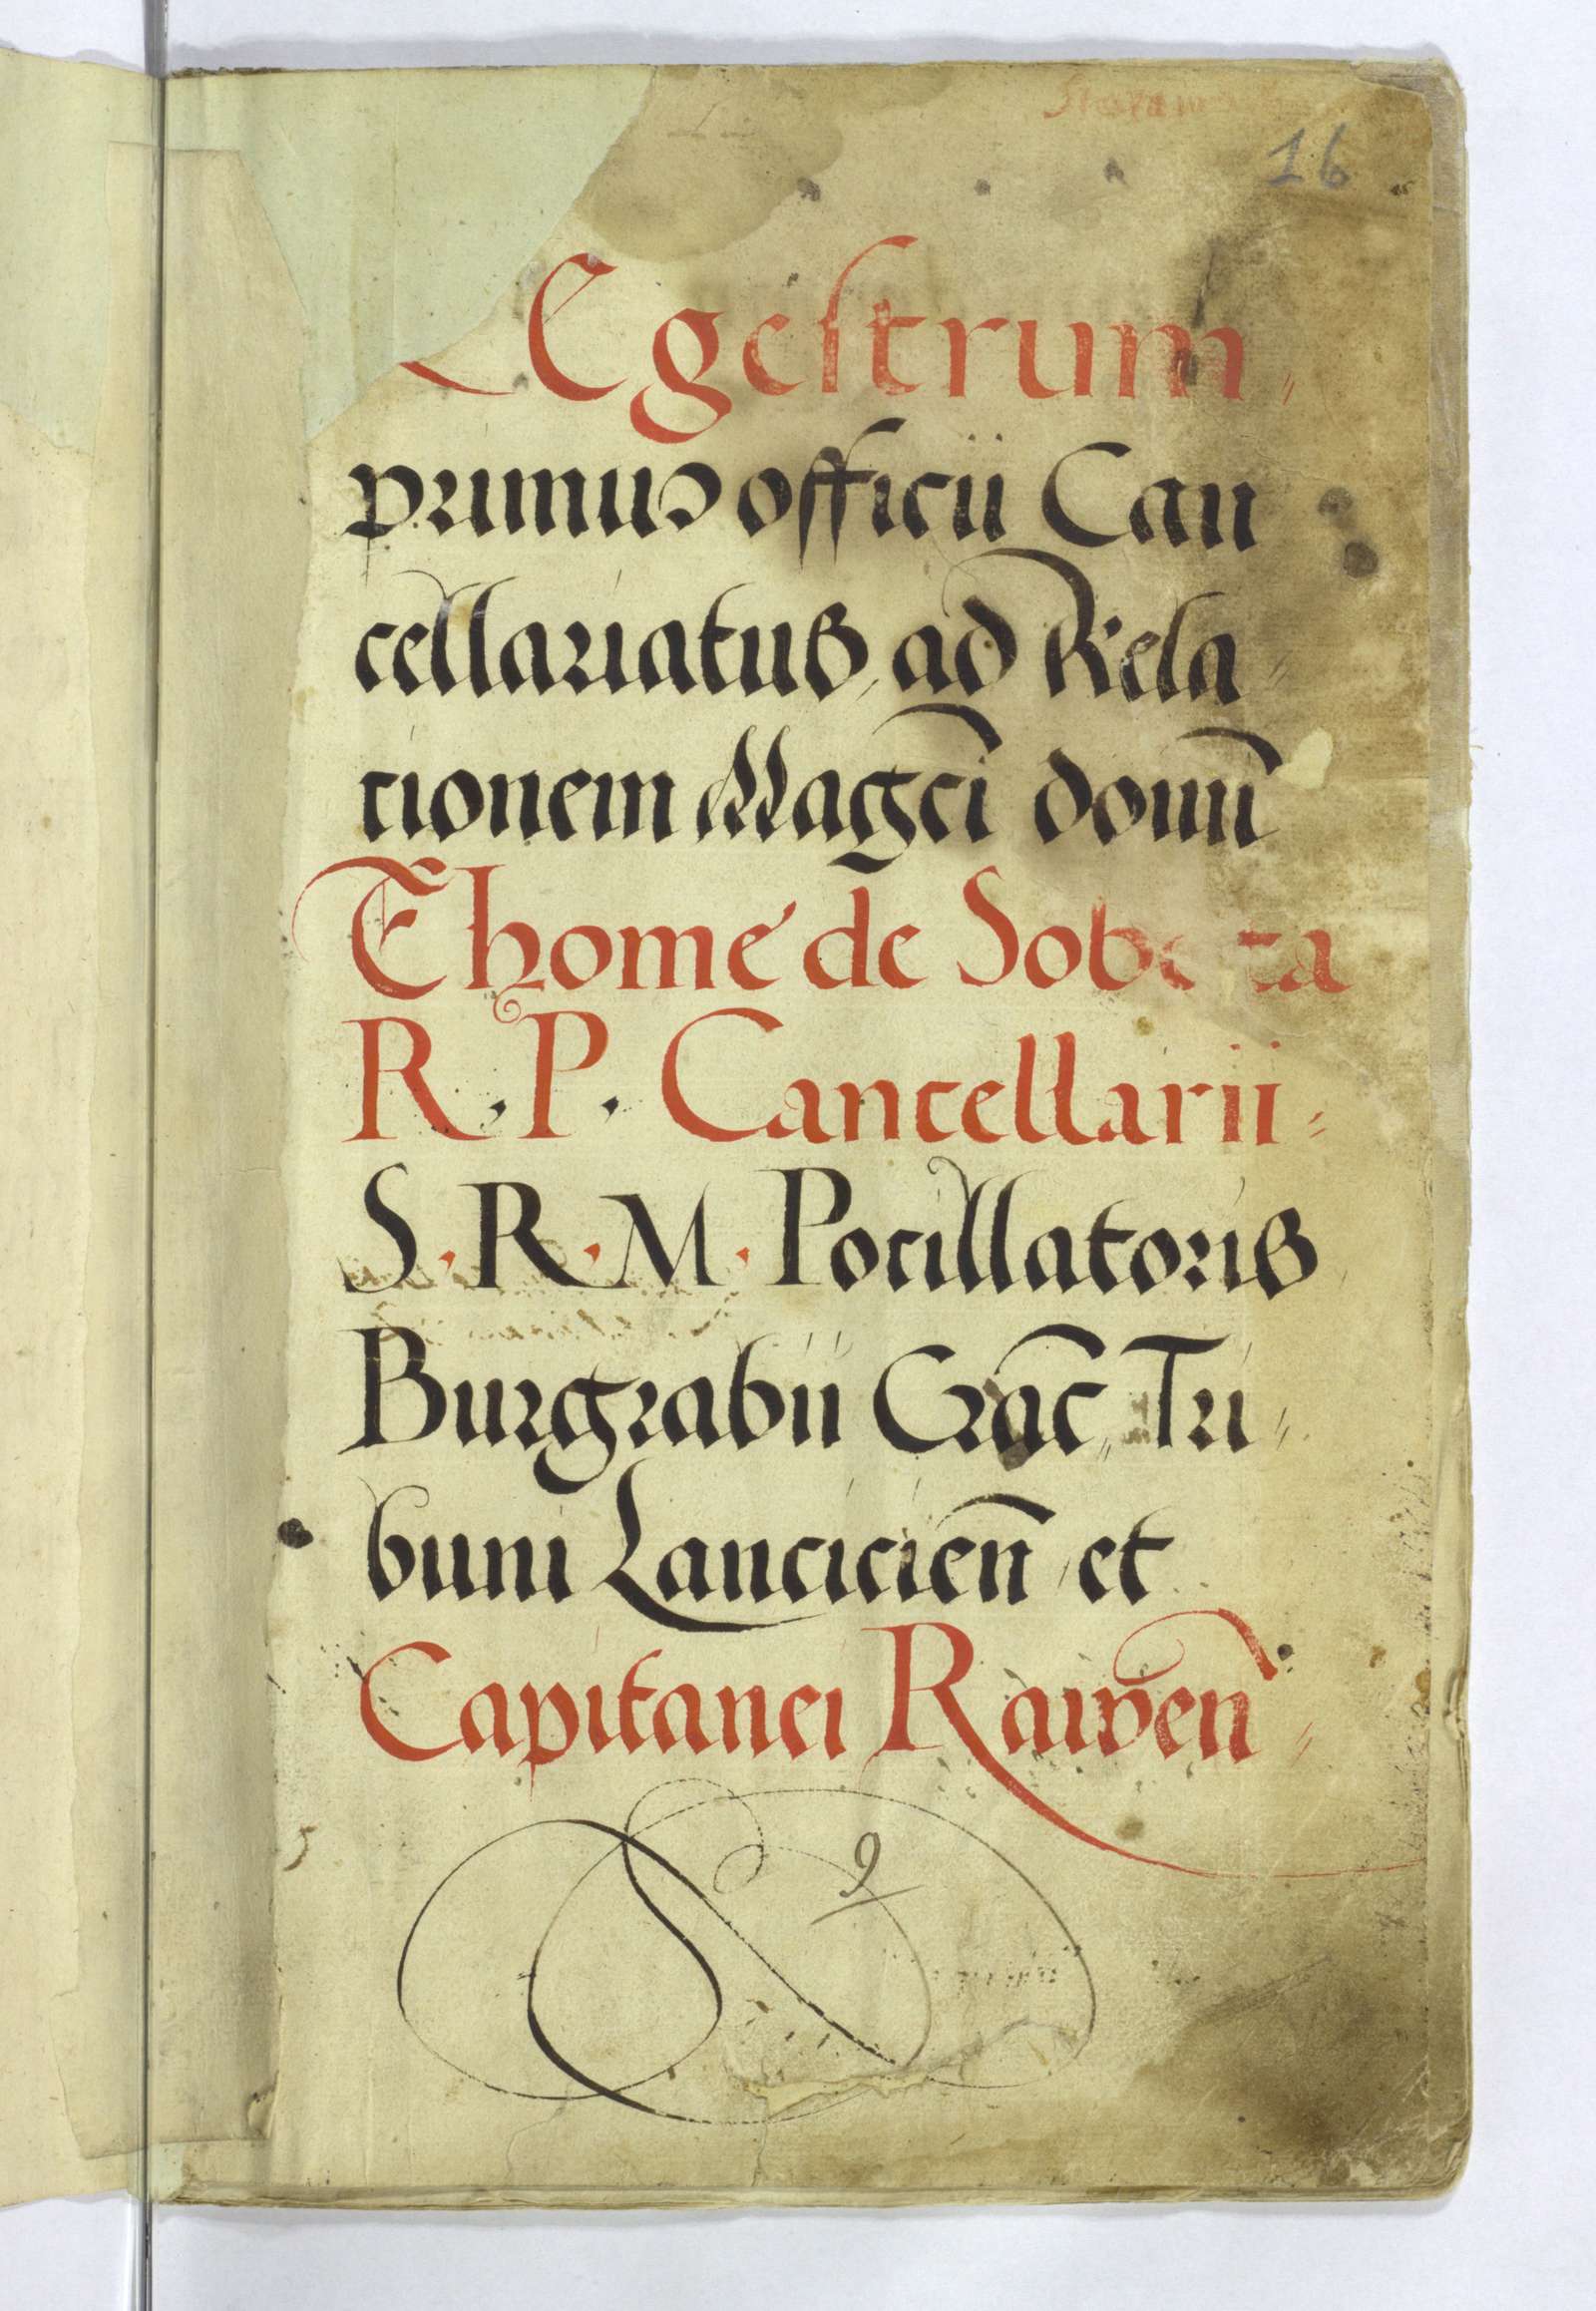 16
Egestrum
primum officii Can
cellariatus, ad Rela
tionem Magci domi
Thome de Sob
R. P. Cancellarii
S. R. M. Pocillatoris
Burgrabii Crac, Tri
buni Lancicien et
Capitanei Rawen
9